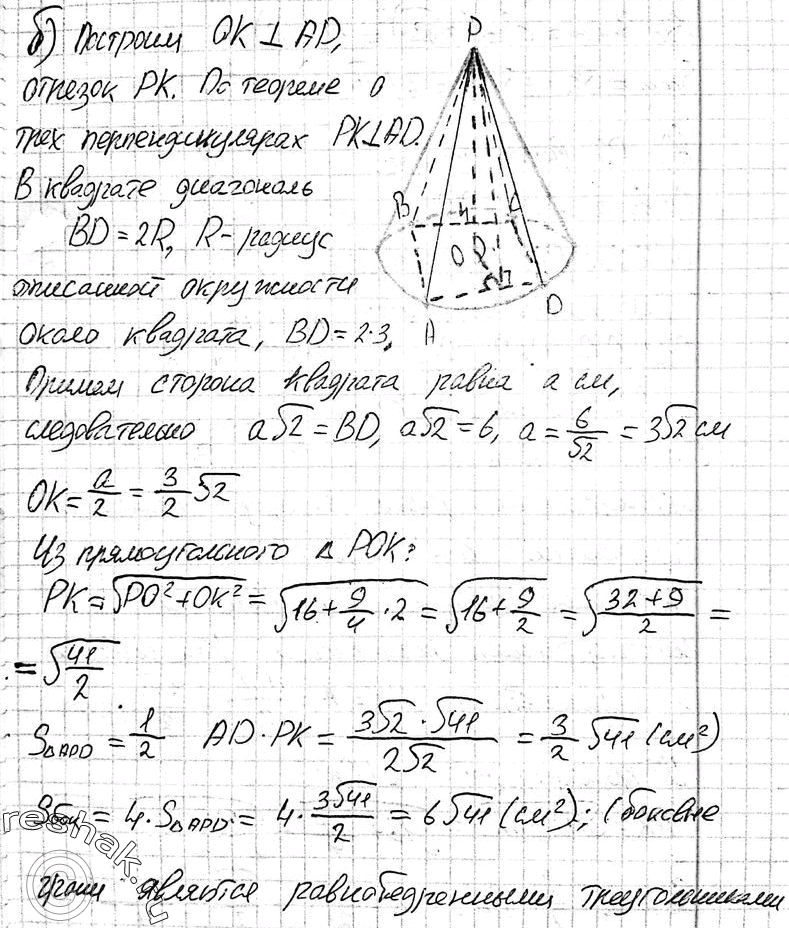 б) Построим OK ⊥ AD,
отрезок PK. По теореме о
трех перпендикулярах PK⊥AD.
В квадрате диагональ
BD = 2R, R – радиус
описанной окружности
около квадрата, BD = 2·3,
Примем сторона квадрата равна a см,
следовательно a√2 = BD, a√2 = 6, a = 6/√2 = 3√2 см
OK = a/2 = 3/2 √2
Из прямоугольного Δ POK:
PK = √(PO² + OK²) = √(16 + 9/4 · 2) = √(16 + 9/2) = √((32 + 9)/2) =
= √(41/2)
S△APD = 1/2 AD · PK = (3√2 · √41)/(2√2) = 3/2 √41 (см²)
Sбок = 4 · S△APD = 4 · 3√41/2 = 6√41 (см²); (боковые
грани являются равнобедренными треугольниками
P
B
C
O
K
A
D
reshak.ru